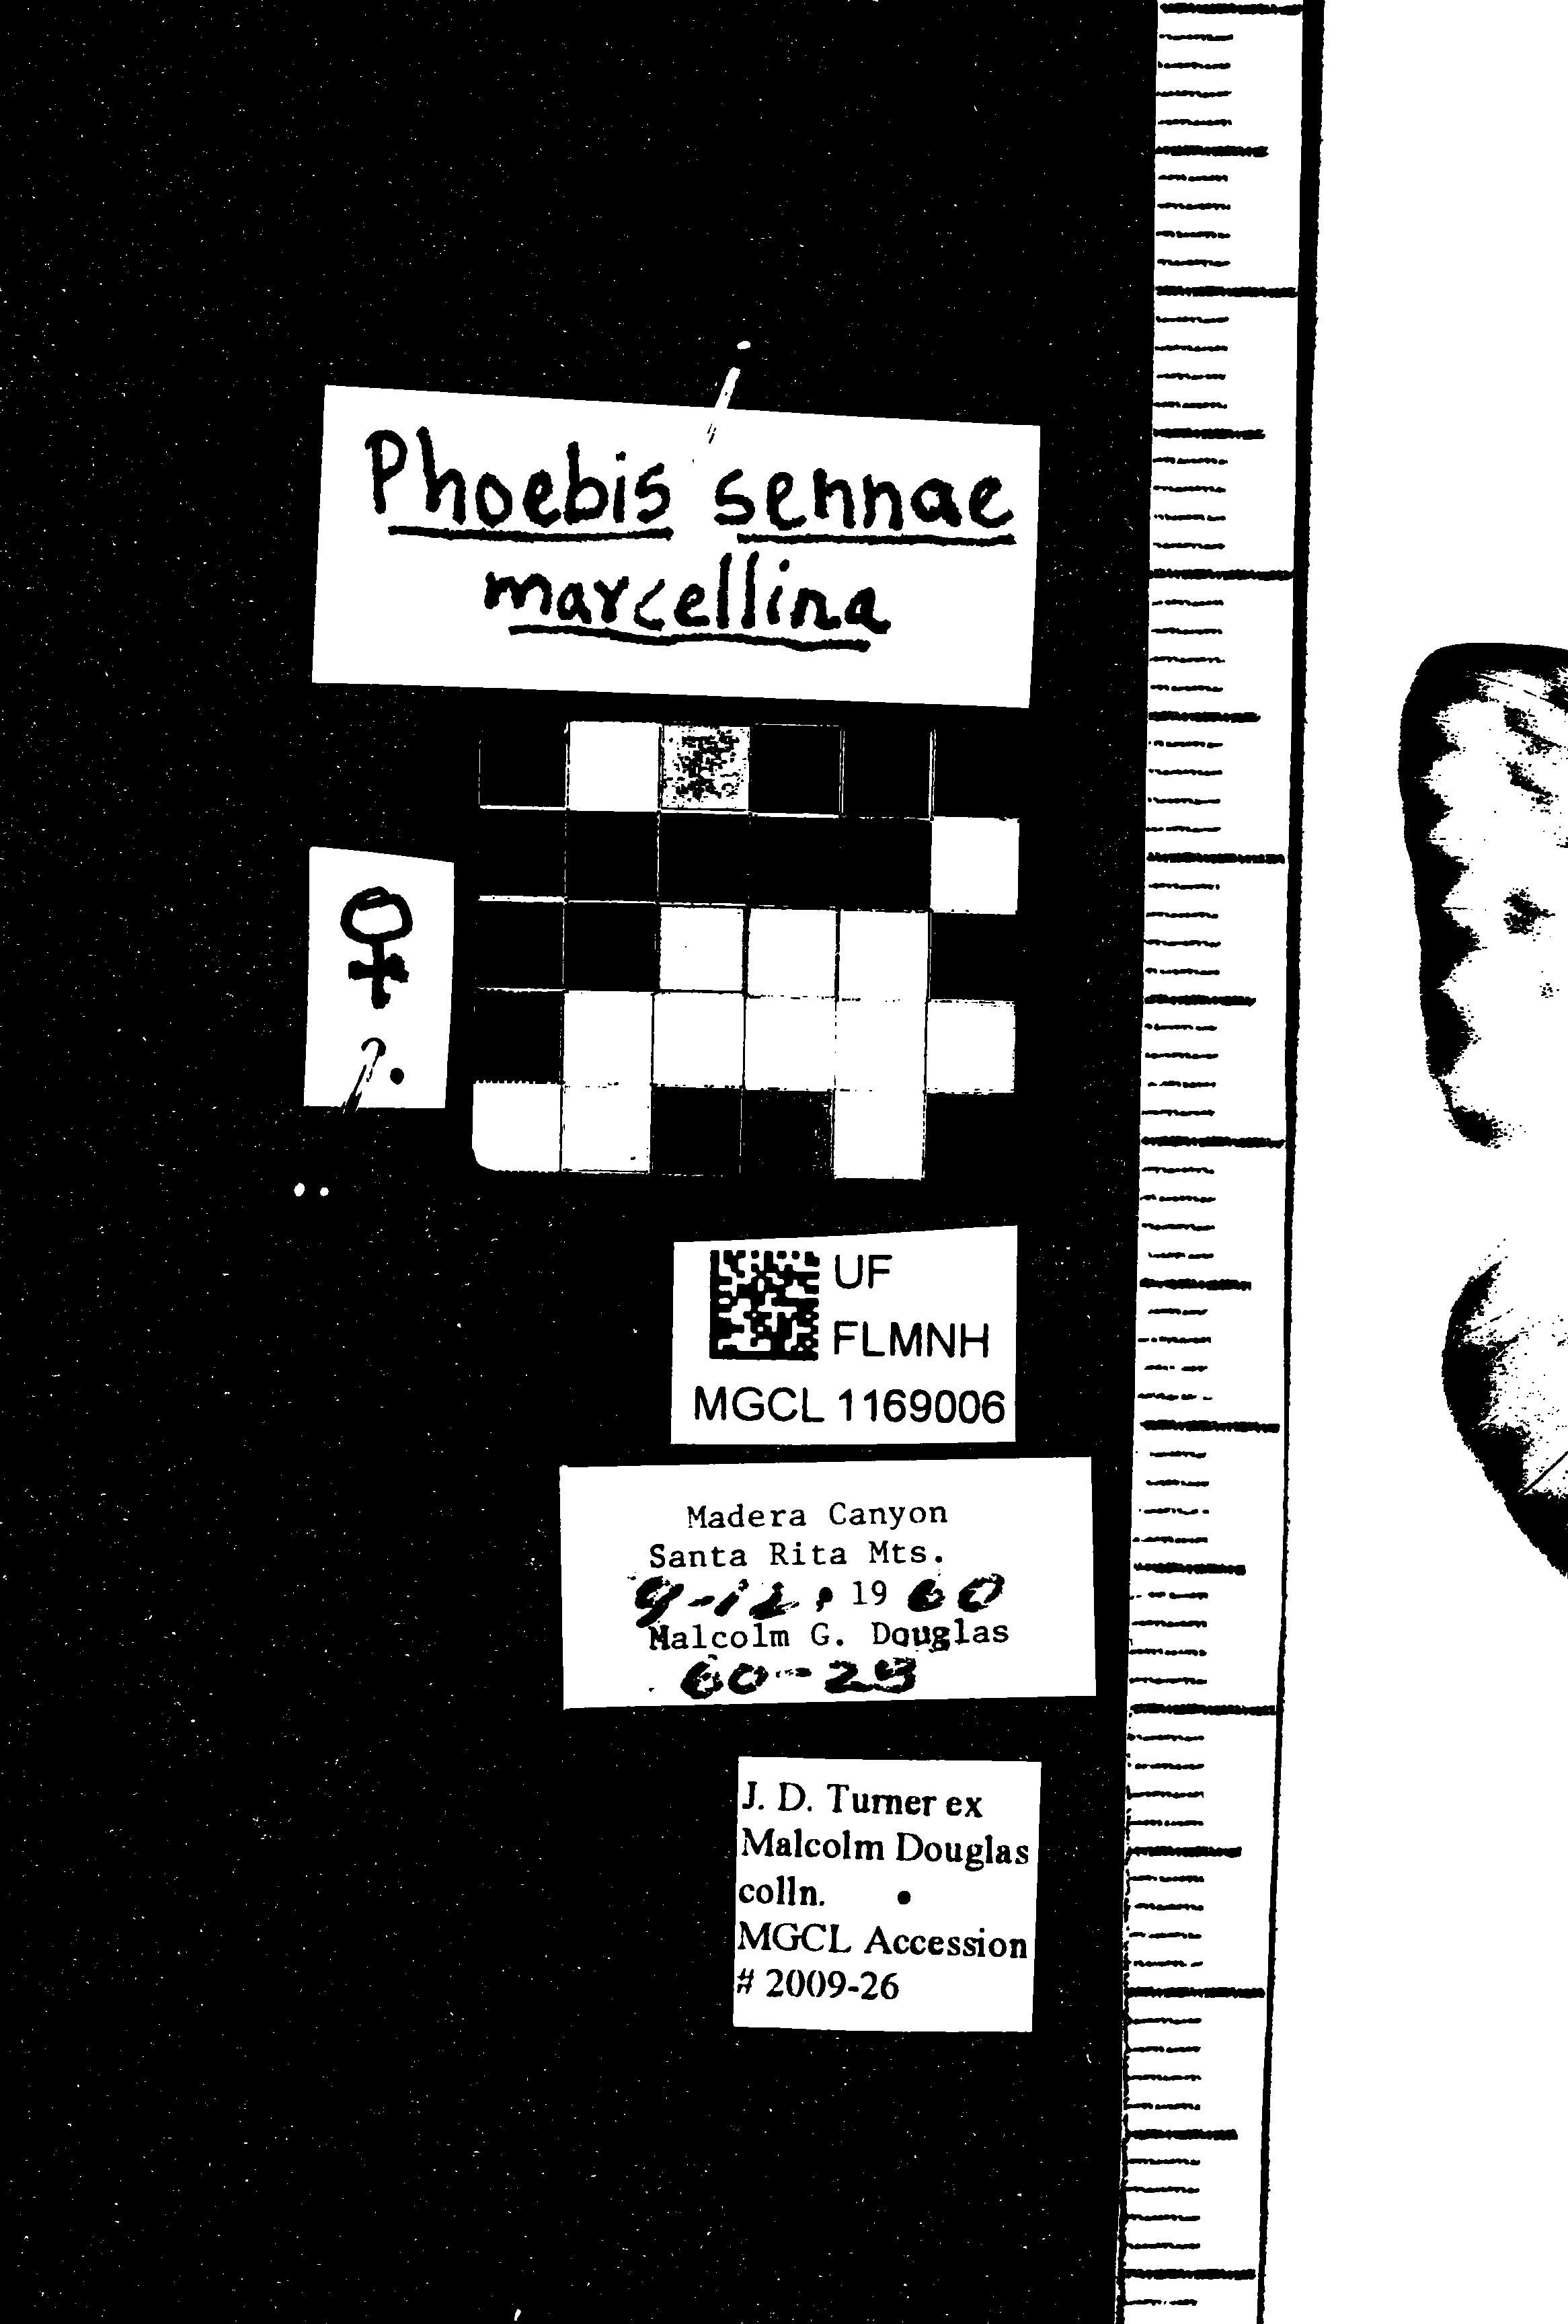 Phoebis sennae
marcellina
♀
?.
UF
FLMNH
MGCL 1169006
Madera Canyon
Santa Rita Mts.
9-12, 1960
Malcolm G. Douglas
60-29
J. D. Turner ex
Malcolm Douglas
colln.
MGCL Accession
# 2009-26